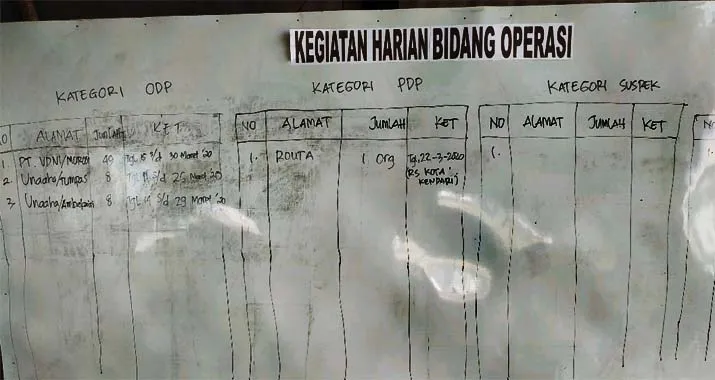 KEGIATAN HARIAN BIDANG OPERASI
KATEGORI ODP
NO ALAMAT JUMLAH KET
1. PT. VDNI/MOROSI 40 Tgl 15 s/d 30 Maret '20
2. Unaaha/Tumpas 8 Tgl 14 s/d 25 Maret '20
3. Unaaha/Ambekairi 8 Tgl 14 s/d 29 Maret '20
KATEGORI PDP
NO ALAMAT JUMLAH KET
1. ROUTA 1 Org Tgl, 22-3-2020
(RS KOTA
KENDARI)
KATEGORI SUSPEK
NO ALAMAT JUMLAH KET
1.